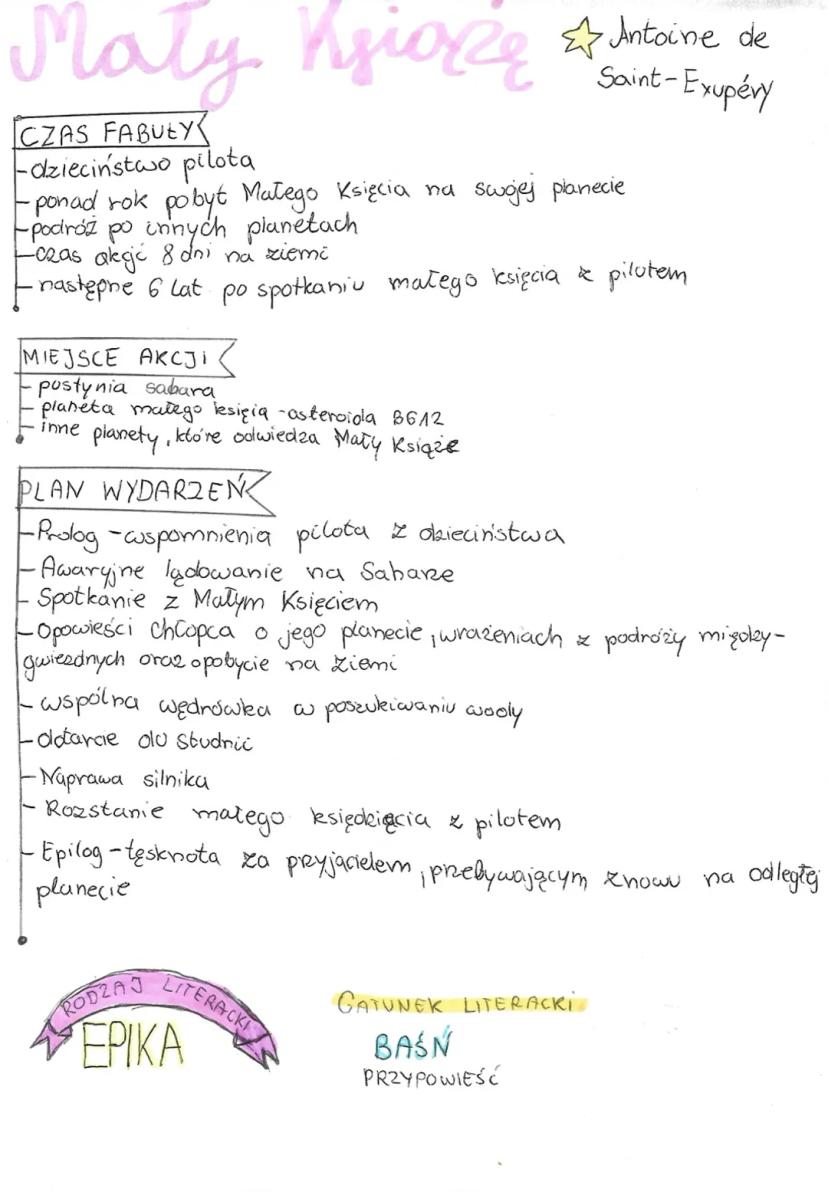 Mały Książę
Antoine de
Saint-Exupéry
CZAS FABUŁY
-dzieciństwo pilota
-ponad rok pobyt Małego Księcia na swojej planecie
-podróż po innych planetach
-czas akcji 8 dni na ziemi
-następne 6 lat po spotkaniu małego księcia z pilotem
MIEJSCE AKCJI
- pustynia sahara
- planeta małego księcia -asteroida B612
- inne planety, które odwiedza Mały Książe
PLAN WYDARZEŃ
-Prolog -wspomnienia pilota z dzieciństwa
-Awaryjne lądowanie na Saharze
- Spotkanie z Małym Księciem
-Opowieści chłopca o jego planecie, wrażeniach z podróży między-
gwiezdnych oraz o pobycie na ziemi
- wspólna wędrówka w poszukiwaniu wody
-dotarcie do studnii
-Naprawa silnika
- Rozstanie małego księdzięcia z pilotem
- Epilog -tęsknota za przyjacielem, przebywającym znowu na odległej
planecie
RODZAJ LITERACKI
EPIKA
GATUNEK LITERACKI
BAŚŃ
PRZYPOWIEŚĆ